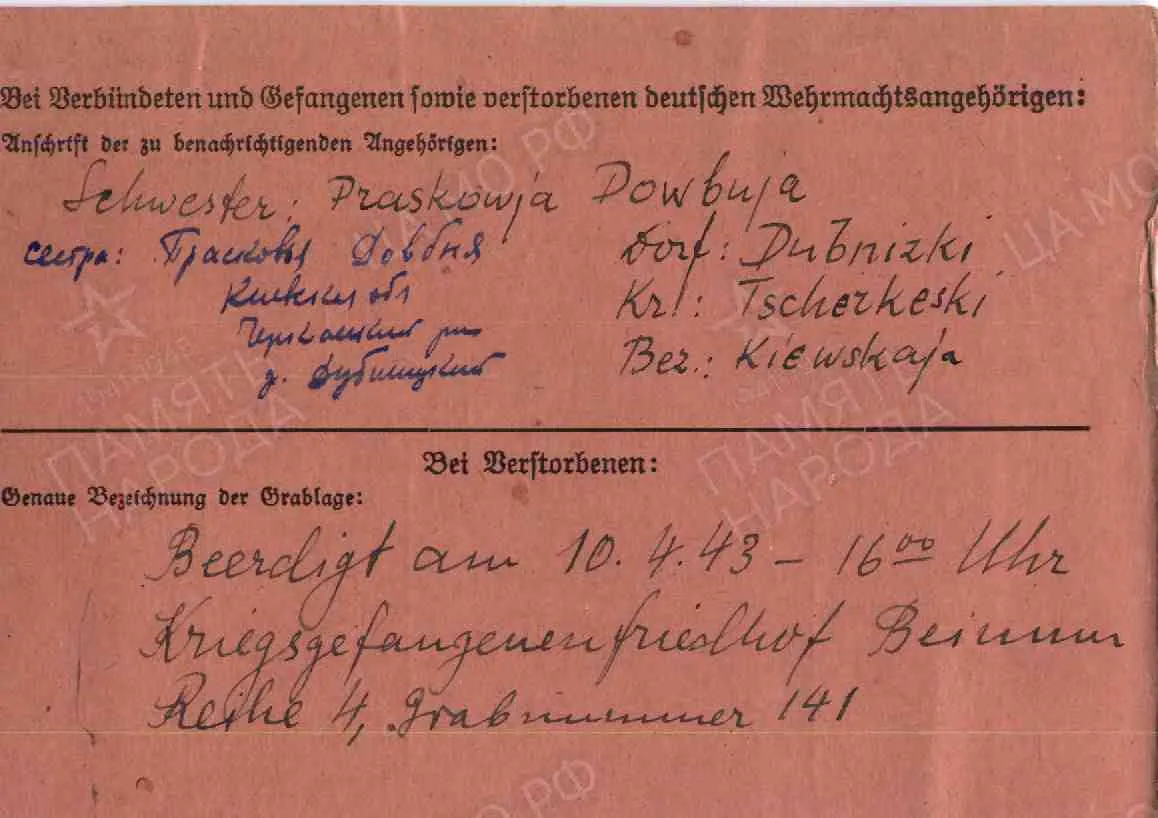 Bei Verbündeten und Gefangenen sowie verstorbenen deutschen Wehrmachtsangehörigen:
Anschrift der zu benachrichtigenden Angehörigen:
Schwester: Praskowja Dowbuja
сестра: Прасковья Довбня
Dorf: Dubnizki
Киевская обл
Kr.: Tscherkeski
Черкасский
Bez.: Kiewskaja
д. Дубницкий
Bei Verstorbenen:
Genaue Bezeichnung der Grablage:
Beerdigt am 10.4.43 – 16⁰⁰ Uhr
Kriegsgefangenenfriedhof
Reihe 4, Grabnummer 141
ЦА МО РФ
ПАМЯТЬ
НАРОДА